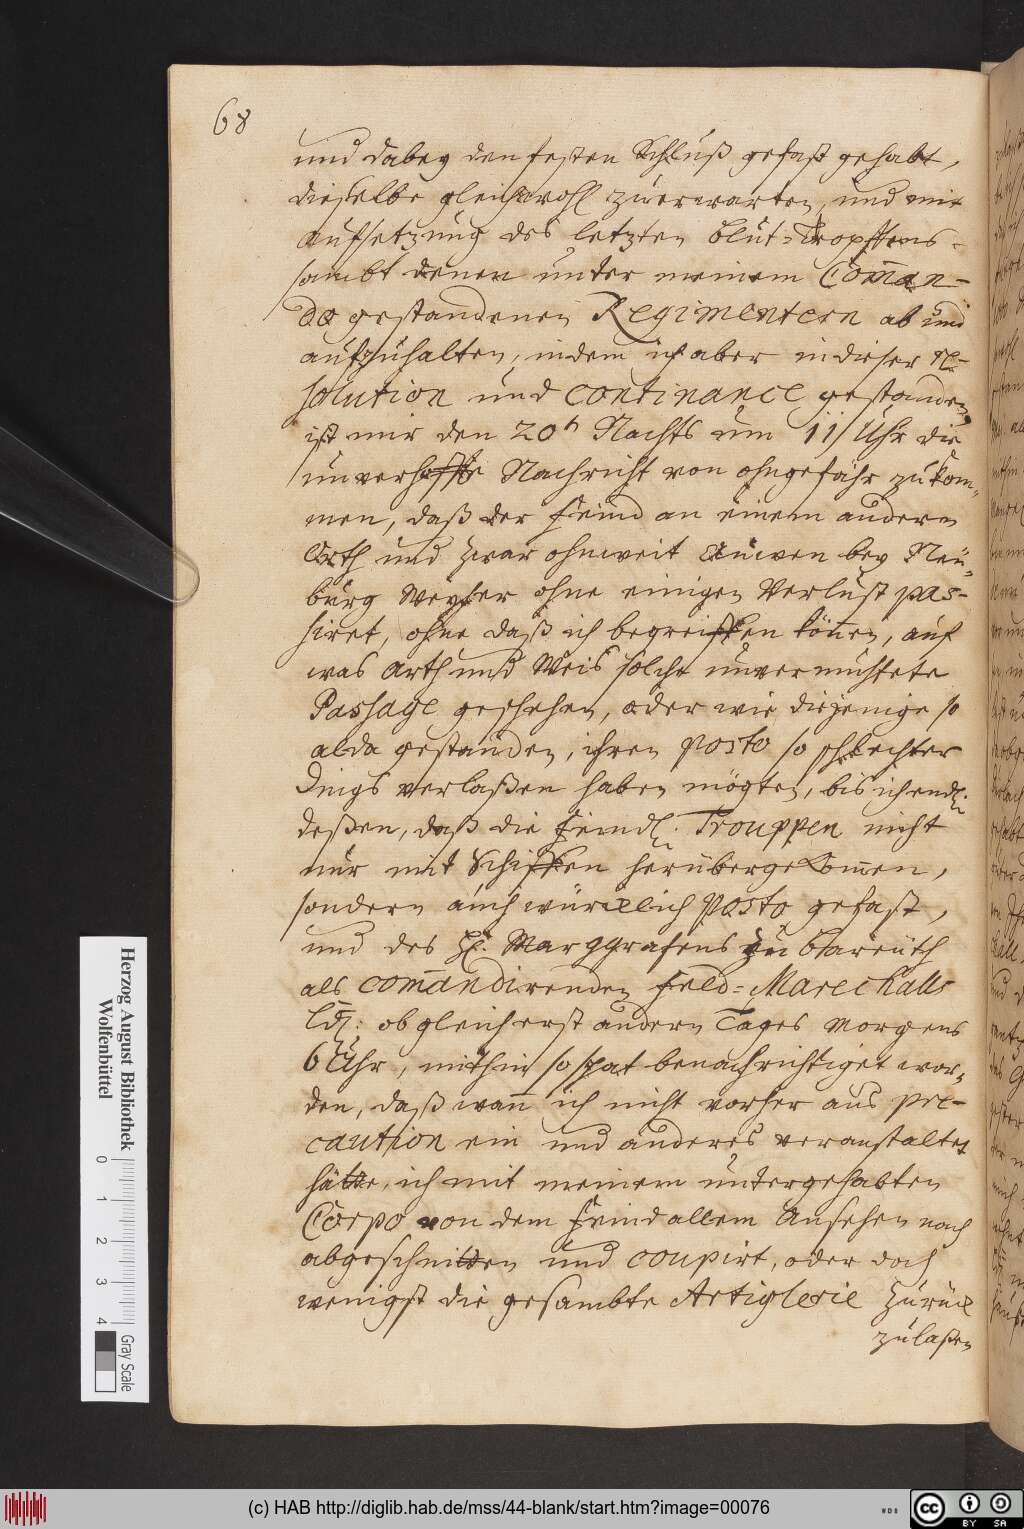 68
und dabey den festen Schluß gefast gehabt,
dieselbe gleichwohl zuerwarten, und mit
aufsetzung des letzten blut-Tropffens
sambt denen unter meinem Comman-
do gestandenen Regimentern ab und
aufzuhalten, indem ich aber in dieser re-
solution und continance gestanden,
ist mir den 20t Nachts um 11 Uhr die
unverhoffte Nachricht von ohngefähr zu kom-
men, daß der Feind an einem andern
Orth und zwar ohnweit bey Neü-
burg Weyher ohne einigen Verlust pas-
siret, ohne daß ich begreiffen können, auf
was Arth und Weis solche unvermuthete
Passage geschehen, oder wie diejenige so
alda gestanden, ihren posto so schlechter
Dings verlaßen haben mögten, bis ich endl:
deßen, daß die Feindl: Trouppen nicht
nur mit Schiffen herübergekommen,
sondern auch würcklich Posto gefast,
und des H: Marggrafens zu Bareuth
als commandirenden Feld-Marechalls
Ld: obgleich erst andern Tages Morgens
6 Uhr, mithin so spat benachrichtiget wor-
den, daß wann ich nicht vorher aus pre-
caution ein und anderes veranstaltet
hätte, ich mit meinem untergehabten
Corpo von dem Feind allem Ansehen nach
abgeschnitten und coupirt, oder doch
wenigst die gesambte Artiglerie zurück
zulaßen
Herzog August Bibliothek
Wolfenbüttel
0 1 2 3 4
Gray Scale
(c) HAB http://diglib.hab.de/mss/44-blank/start.htm?image=00076
WDB
cc BY SA